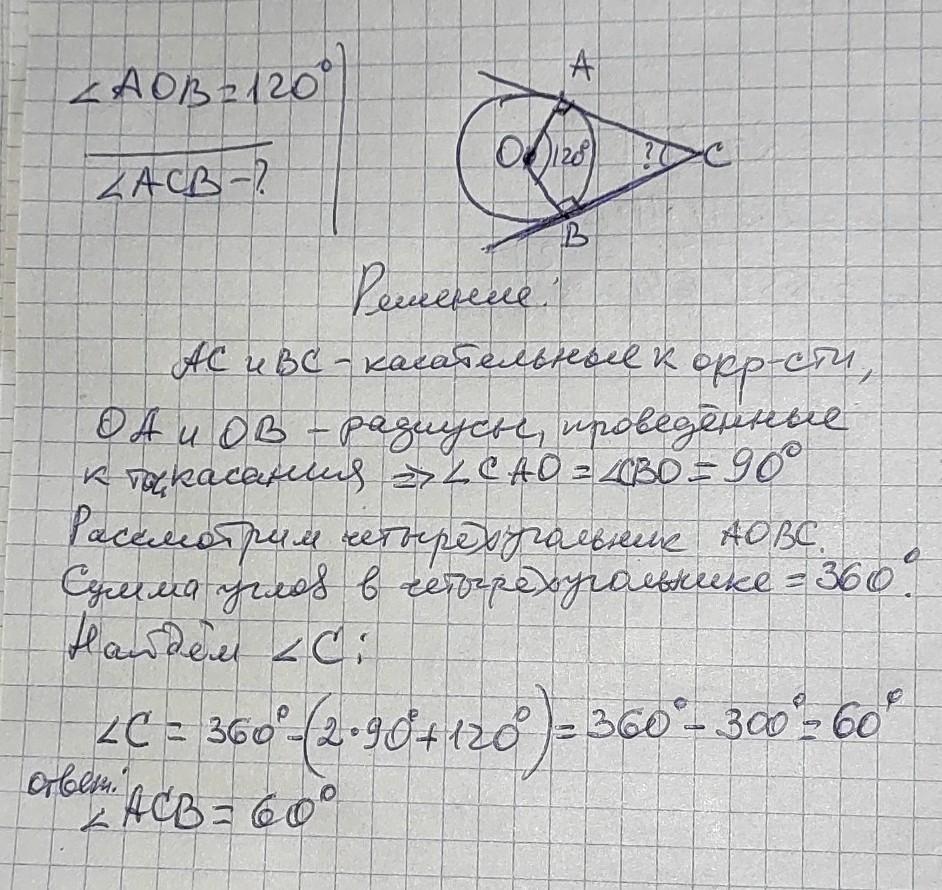 ∠AOB=120°
∠ACB-?
A
O
120°
?
C
B
Решение:
AC и BC - касательные к окр-сти,
OA и OB - радиусы, проведённые
к т. касания ⇒ ∠CAO = ∠CBO = 90°
Рассмотрим четырёхугольник AOBC.
Сумма углов в четырёхугольнике = 360°.
Найдём ∠C:
∠C = 360°-(2·90°+120°)=360°-300°=60°
ответ:
∠ACB = 60°